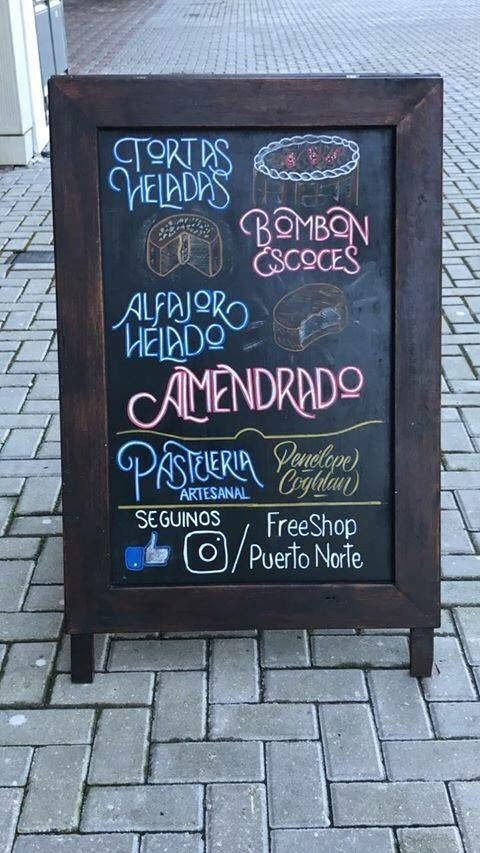 TORTAS
HELADAS
BOMBON
ESCOCES
ALFAJOR
HELADO
ALMENDRADO
PASTELERIA
ARTESANAL
Penélope
Coghlan
SEGUINOS
/ FreeShop
Puerto Norte